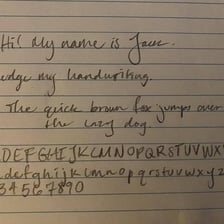 Hi! My name is Jack.
udge my handwriting.
The quick brown fox jumps over
the lazy dog.
DEFGHIJKLMNOPQRSTUVWX
defghijklmnopqrstuvwxyz
34567890